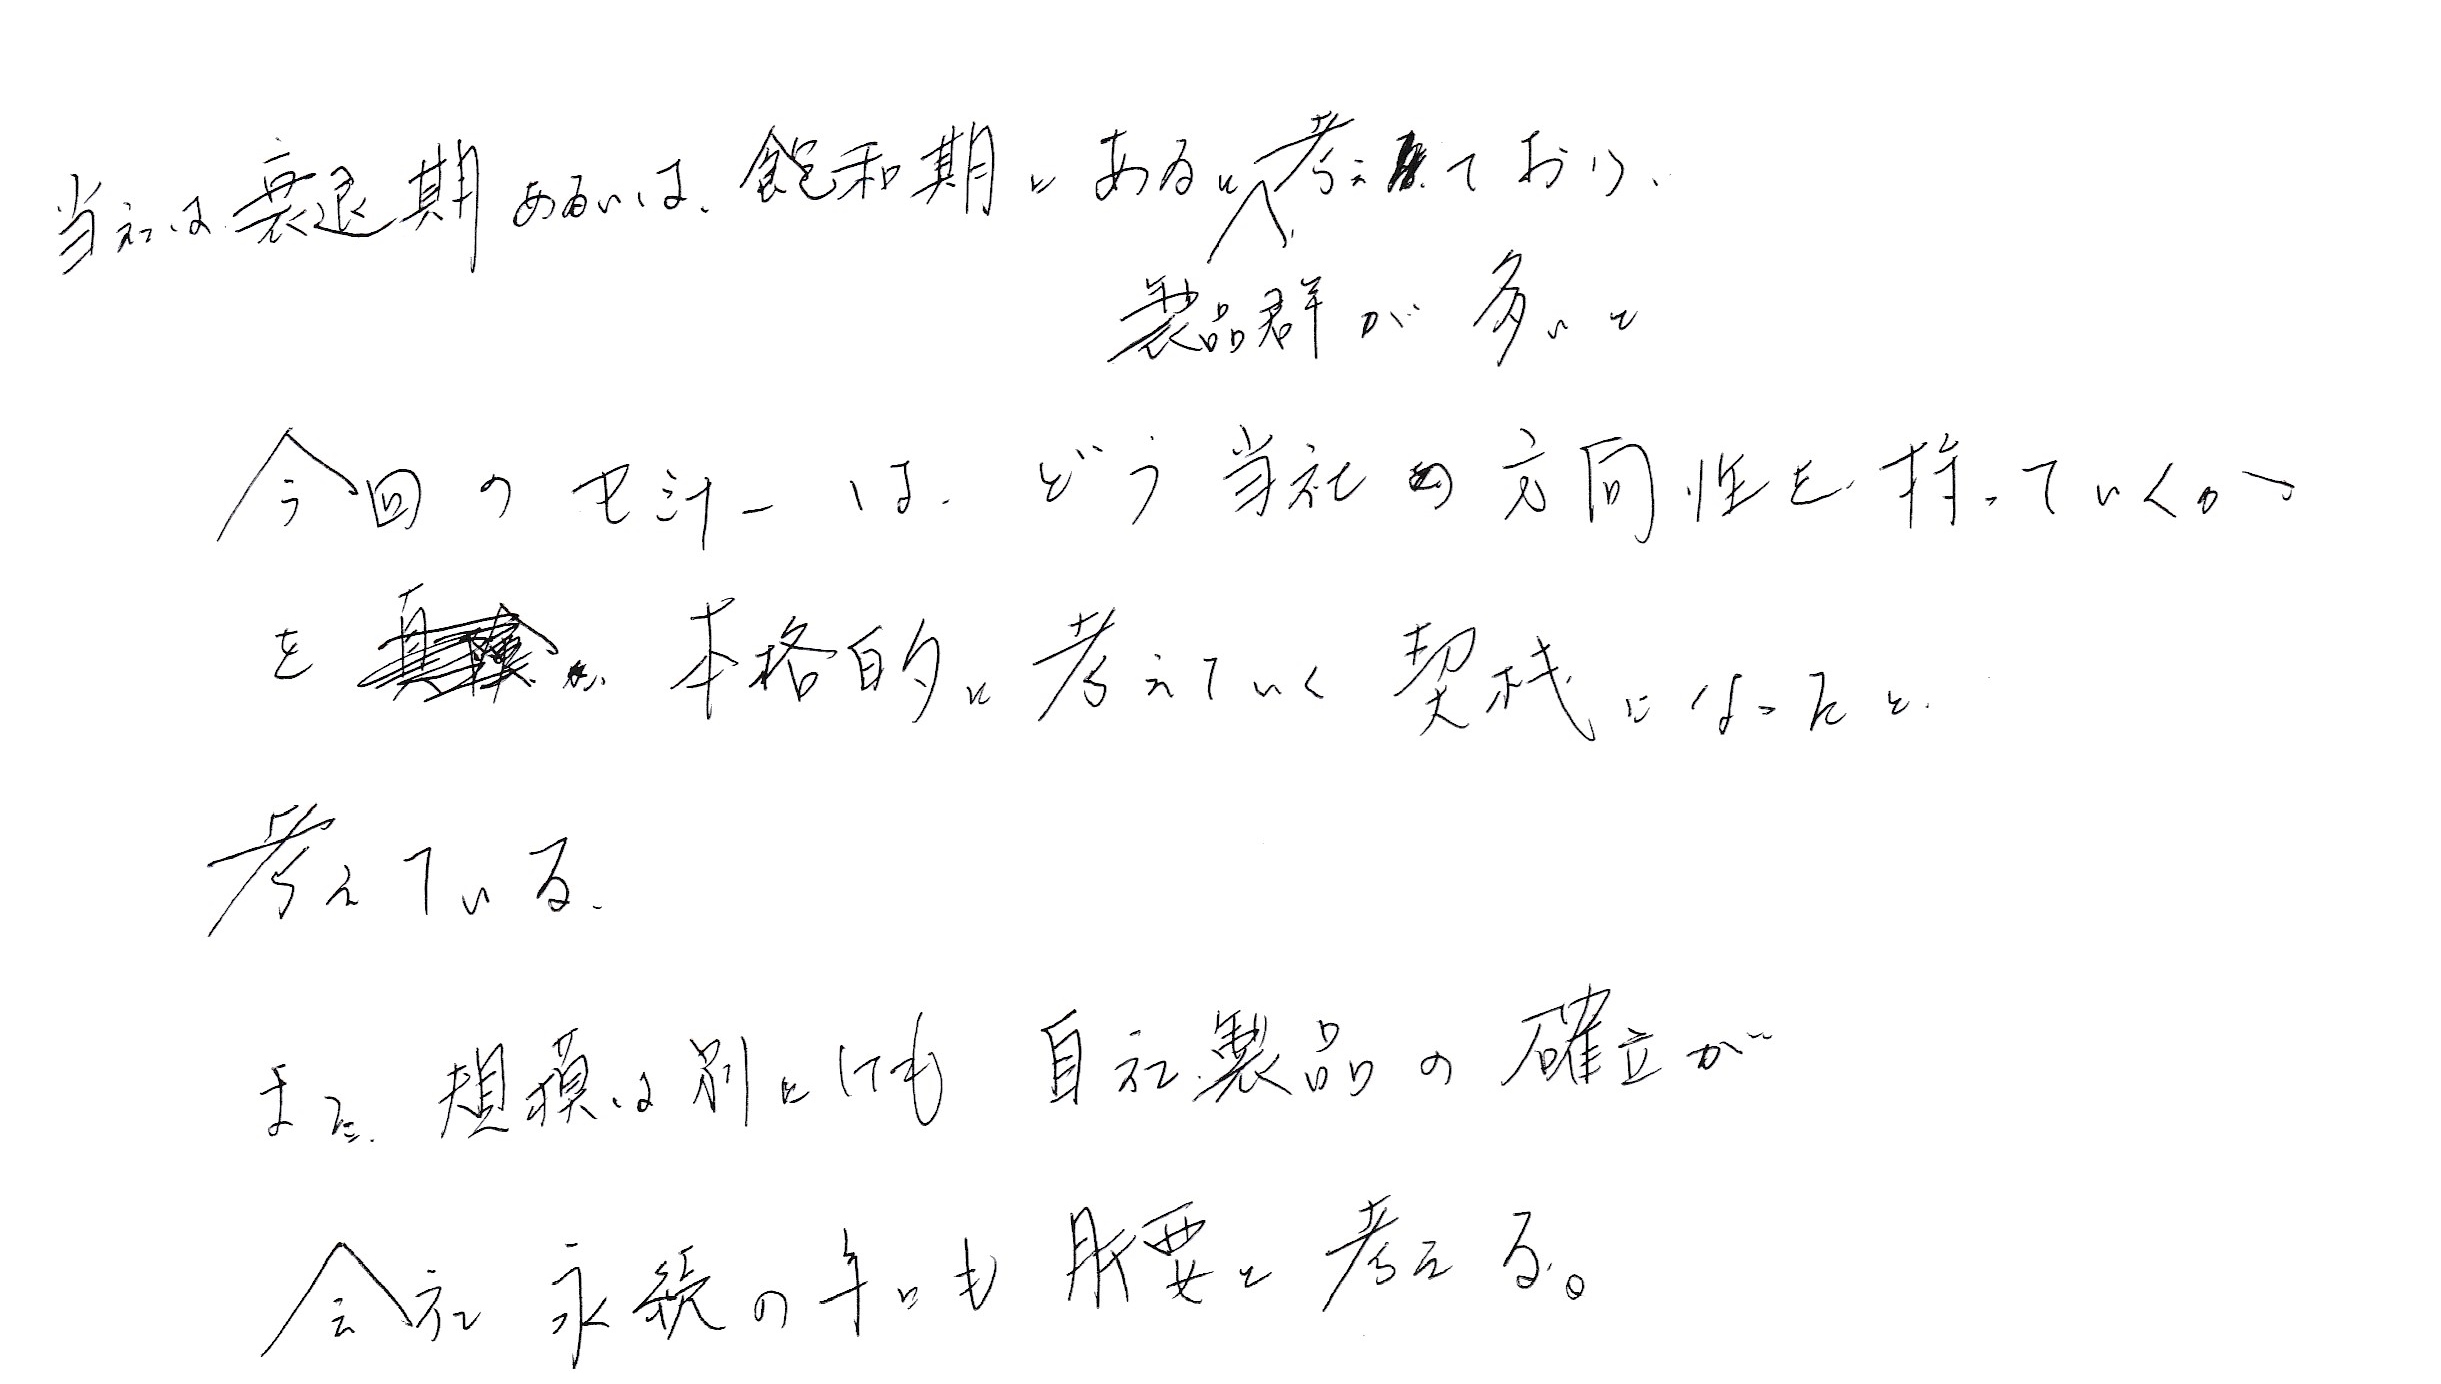 当社は衰退期あるいは、飽和期にあると考えており、
製品群が多いと
今回のセミナーは、どう当社の方向性を持っていくか
を 本格的に考えていく契機になったと、
考えている。
また、規模は別としても自社製品の確立が
会社永続の為にも肝要と考える。